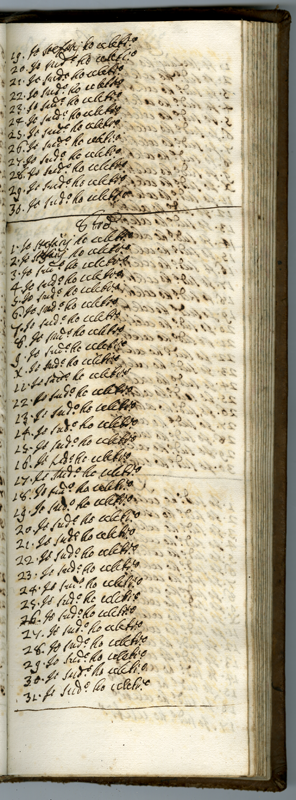 19. Io Stefanij ho celebr:o
20. Io sud:o ho celebr:o
21. Io sud:o ho celebr:o
22. Io sud:o ho celebr:o
23. Io sud:o ho celebr:o
24. Io sud:o ho celebr:o
25. Io sud:o ho celebr:o
26. Io sud:o ho celebr:o
27. Io sud:o ho celebr:o
28. Io sud:o ho celebr:o
29. Io sud:o ho celebr:o
30. Io sud:o ho celebr:o
8bre
1. Io Stefanij ho celebr:o
2. Io Stefanij ho celebr:o
3. Io sud:o ho celebr:o
4. Io sud:o ho celebr:o
5. Io sud:o ho celebr:o
6. Io sud:o ho celebr:o
7. Io sud:o ho celebr:o
8. Io sud:o ho celebr:o
9. Io sud:o ho celebr:o
X. Io sud:o ho celebr:o
11. Io sud:o ho celebr:o
12. Io sud:o ho celebr:o
13. Io sud:o ho celebr:o
14. Io sud:o ho celebr:o
15. Io sud:o ho celebr:o
16. Io sud:o ho celebr:o
17. Io sud:o ho celebr:o
18. Io sud:o ho celebr:o
19. Io sud:o ho celebr:o
20. Io sud:o ho celebr:o
21. Io sud:o ho celebr:o
22. Io sud:o ho celebr:o
23. Io sud:o ho celebr:o
24. Io sud:o ho celebr:o
25. Io sud:o ho celebr:o
26. Io sud:o ho celebr:o
27. Io sud:o ho celebr:o
28. Io sud:o ho celebr:o
29. Io sud:o ho celebr:o
30. Io sud:o ho celebr:o
31. Io sud:o ho celebr:o